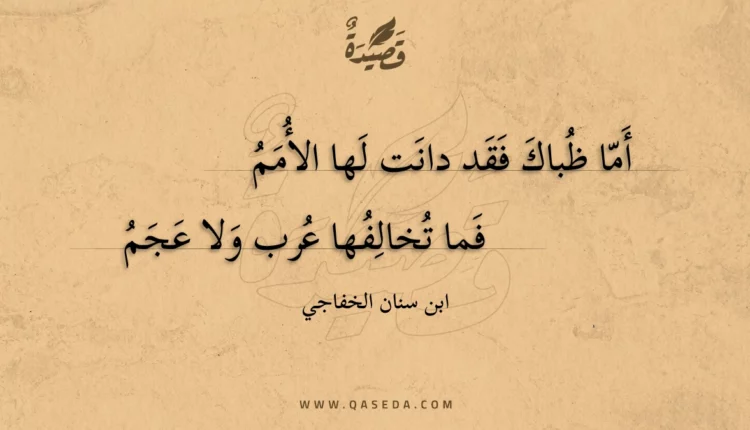 قَصِيدَةٌ
أَمّا ظُباكَ فَقَد دانَت لَها الأُمَمُ
فَما تُخالِفُها عُرب وَلا عَجَمُ
ابن سنان الخفاجي
WWW.QASEDA.COM